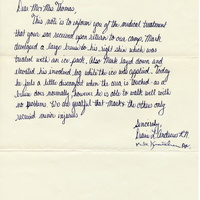 Dear Mr. Mrs. Thomas,
This note is to inform you of the medical treatment
that your son received upon return to our camp. Mark
developed a large bruise on his right shin which was
treated with an ice pack. Also Mark layed down and
elevated his involved leg while the ice was applied. Today
he feels a little discomfort when the area is touched as a
bruise does normally, however he is able to walk well with
no problems. We are grateful that Mark & the others only
received minor injuries.
Sincerely,